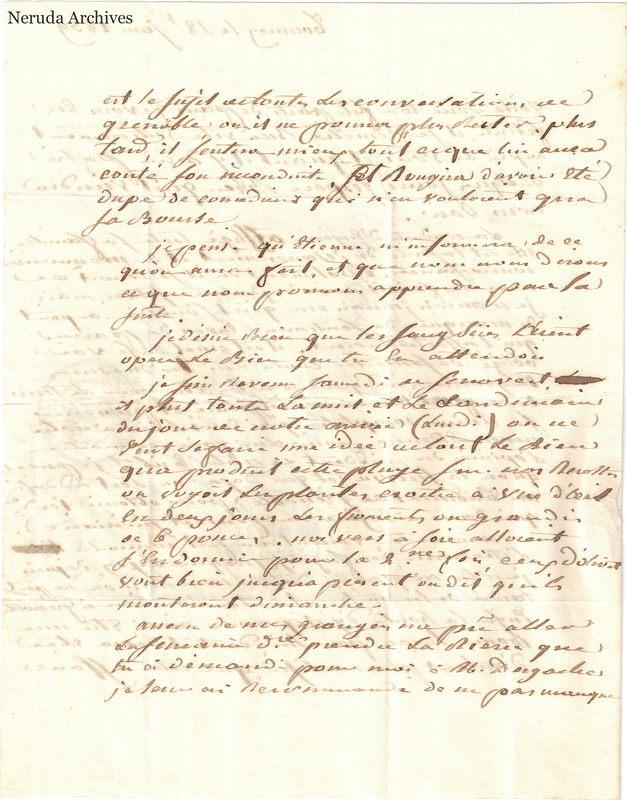 Neruda Archives
est le sujet de toutes les conversations de
grenoble ou il ne pourra plus Rester. plus
tard, il sentira mieux tout ce que lui aura
couté son inconduite, et Rougira d'avoir été
dupe de comediens qui n'en vouloient qu'a
sa Bourse
je pense qu'Etienne m'informera de ce
qu'on aura fait, et que nous nous dirons
ce que nous pourrons apprendre par la
suite.
je desire Bien que les sangsües t'aient
operé Le Bien que tu en attendois
je suis Revenu samedi de
il plut toute La nuit et Le Landemain
du jour de notre (Lundi) on ne
peut se faire une idée de tout Le Bien
qu'a produit cette pluye sur nos Recoltes
on voyoit les plantes croitre a vue d'oeil
En deux jours Les froments on grandis
de 6 pouces, nos vers à soie alloient
s'Endormir pour la 2.me fois, ceux d'olivet
vont bien jusqu'a présent on dit qu'ils
monteront dimanche.
aucun de mes grangers n'a pu aller
La semaine d.re prendre La Biere que
tu a demandé pour moi à M.
je leur ai Recommandé de ne pas manquer